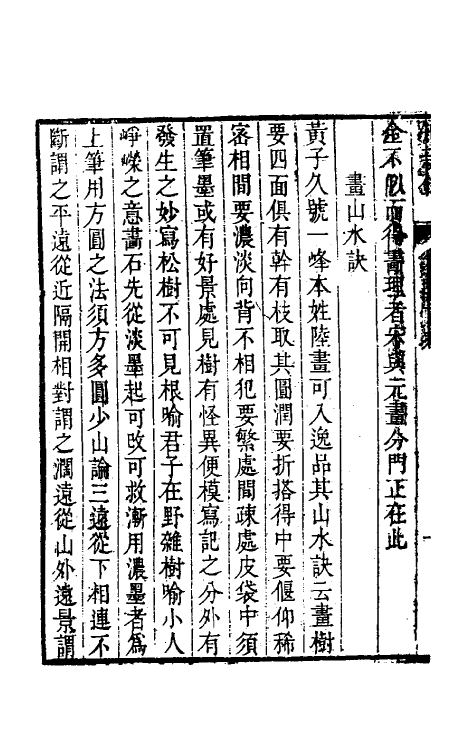 全不似而得畫理者宋與元畫分門正在此
畫山水訣
黃子久號一峰本姓陸畫可入逸品其山水訣云畫樹
要四面俱有幹有枝取其圖潤要折搭得中要偃仰稀
密相間要濃淡向背不相犯要繁處間疎處皮袋中須
置筆墨或有好景處見樹有怪異便模寫記之分外有
發生之妙寫松樹不可見根喻君子在野雜樹喻小人
崢嶸之意畫石先從淡墨起可改可救漸用濃墨者爲
上筆用方圓之法須方多圓少山論三遠從下相連不
斷謂之平遠從近隔開相對謂之濶遠從山外遠景謂